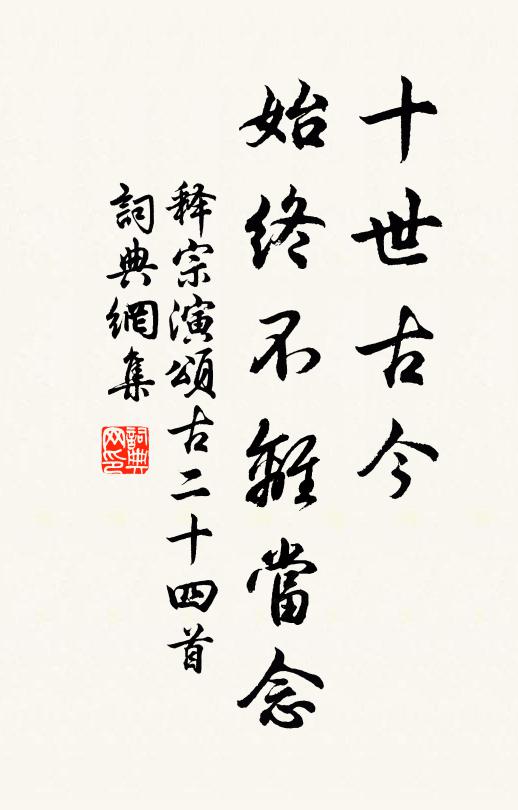 十世古今
始終不離當念
释宗演頌古二十四首
詞典網集
詞典网印